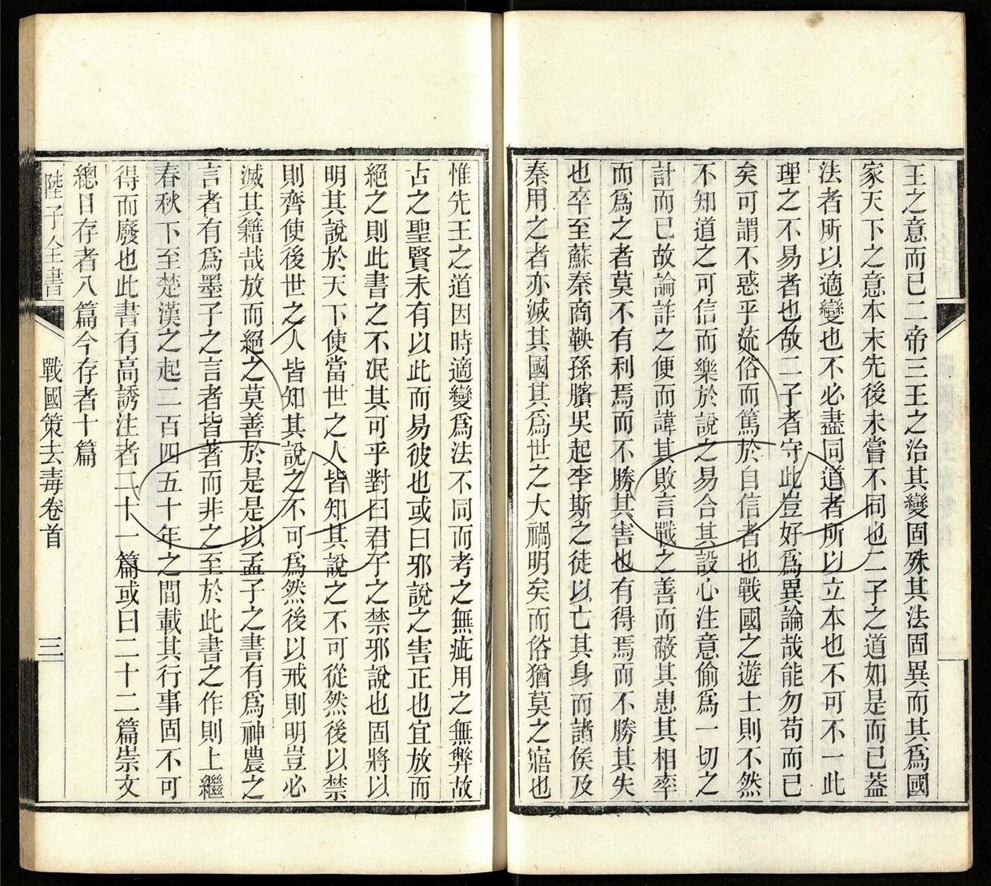 王之意而已二帝三王之治其變固殊其法固異而其爲國
家天下之意本末先後未嘗不同也二子之道如是而已葢
法者所以適變也不必盡同道者所以立本也不可不一此
理之不易者也故二子者守此豈好爲異論哉能勿苟而已
矣可謂不惑乎流俗而篤於自信者也戰國之遊士則不然
不知道之可信而樂於說之易合其設心注意偷爲一切之
計而已故論詐之便而諱其敗言戰之善而蔽其患其相率
而爲之者莫不有利焉而不勝其害也有得焉而不勝其失
也卒至蘇秦商鞅孫臏吳起李斯之徒以亡其身而諸侯及
秦用之者亦滅其國其爲世之大禍明矣而俗猶莫之寤也
惟先王之道因時適變爲法不同而考之無疵用之無弊故
古之聖賢未有以此而易彼也或曰邪說之害正也宜放而
絕之則此書之不泯其可乎對曰君子之禁邪說也固將以
明其說於天下使當世之人皆知其說之不可從然後以禁
則齊使後世之人皆知其說之不可爲然後以戒則明豈必
滅其籍哉放而絕之莫善於是是以孟子之書有爲神農之
言者有爲墨子之言者皆著而非之至於此書之作則上繼
春秋下至楚漢之起二百四五十年之間載其行事固不可
得而廢也此書有高誘注者二十一篇或曰三十二篇崇文
總目存者八篇今存者十篇
陸子全書
戰國策去毒卷首
三